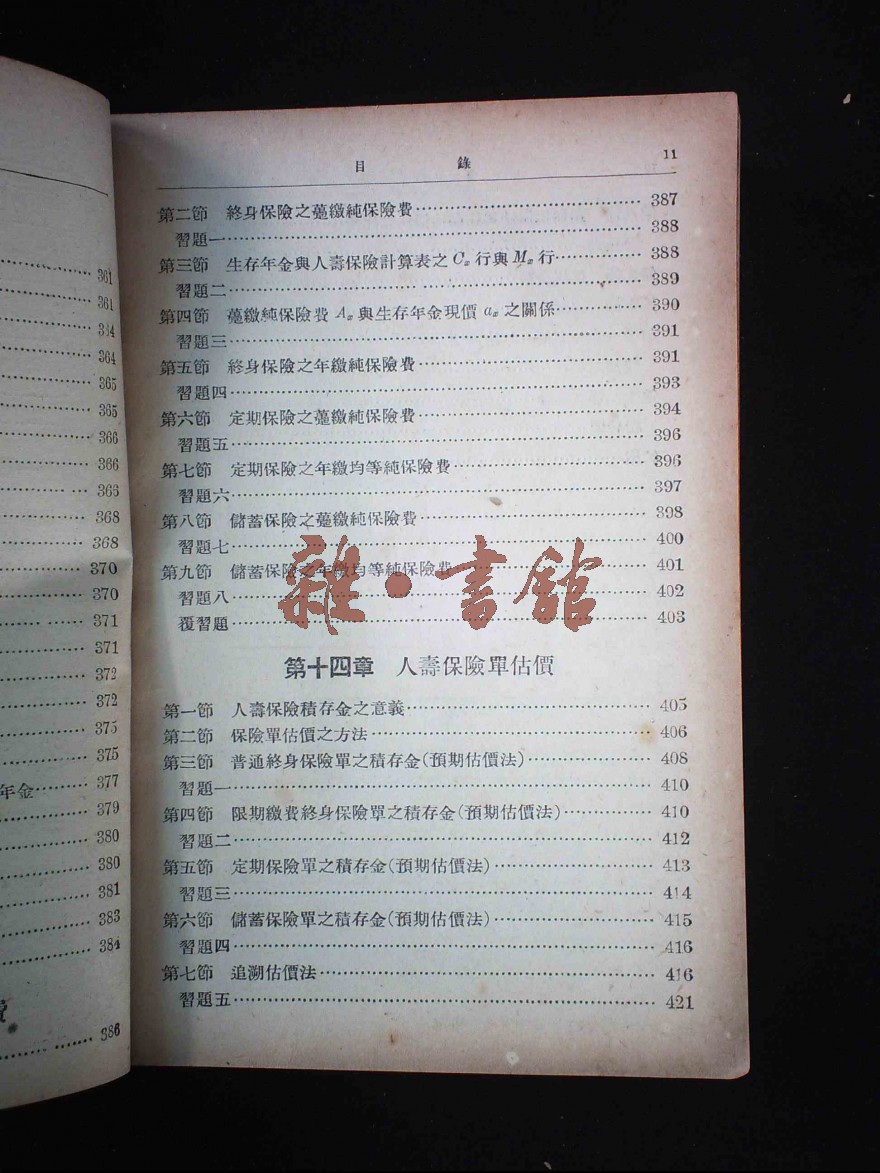 361
361
364
365
365
366
366
368
368
370
370
371
371
372
372
375
375
年金 377
379
380
380
381
383
384
386
目 錄 11
第二節 終身保險之躉繳純保險費 387
習題一 388
第三節 生存年金與人壽保險計算表之 Cx 行與 Mx 行 388
習題二 389
第四節 躉繳純保險費 Ax 與生存年金現價 ax 之關係 390
習題三 391
第五節 終身保險之年繳純保險費 391
習題四 393
第六節 定期保險之躉繳純保險費 394
習題五 396
第七節 定期保險之年繳均等純保險費 396
習題六 397
第八節 儲蓄保險之躉繳純保險費 398
習題七 400
第九節 儲蓄保險之年繳均等純保險費 401
習題八 402
覆習題 403
雜·書館
第十四章 人壽保險單估價
第一節 人壽保險積存金之意義 405
第二節 保險單估價之方法 406
第三節 普通終身保險單之積存金(預期估價法) 408
習題一 410
第四節 限期繳費終身保險單之積存金(預期估價法) 410
習題二 412
第五節 定期保險單之積存金(預期估價法) 413
習題三 414
第六節 儲蓄保險單之積存金(預期估價法) 415
習題四 416
第七節 追溯估價法 416
習題五 421